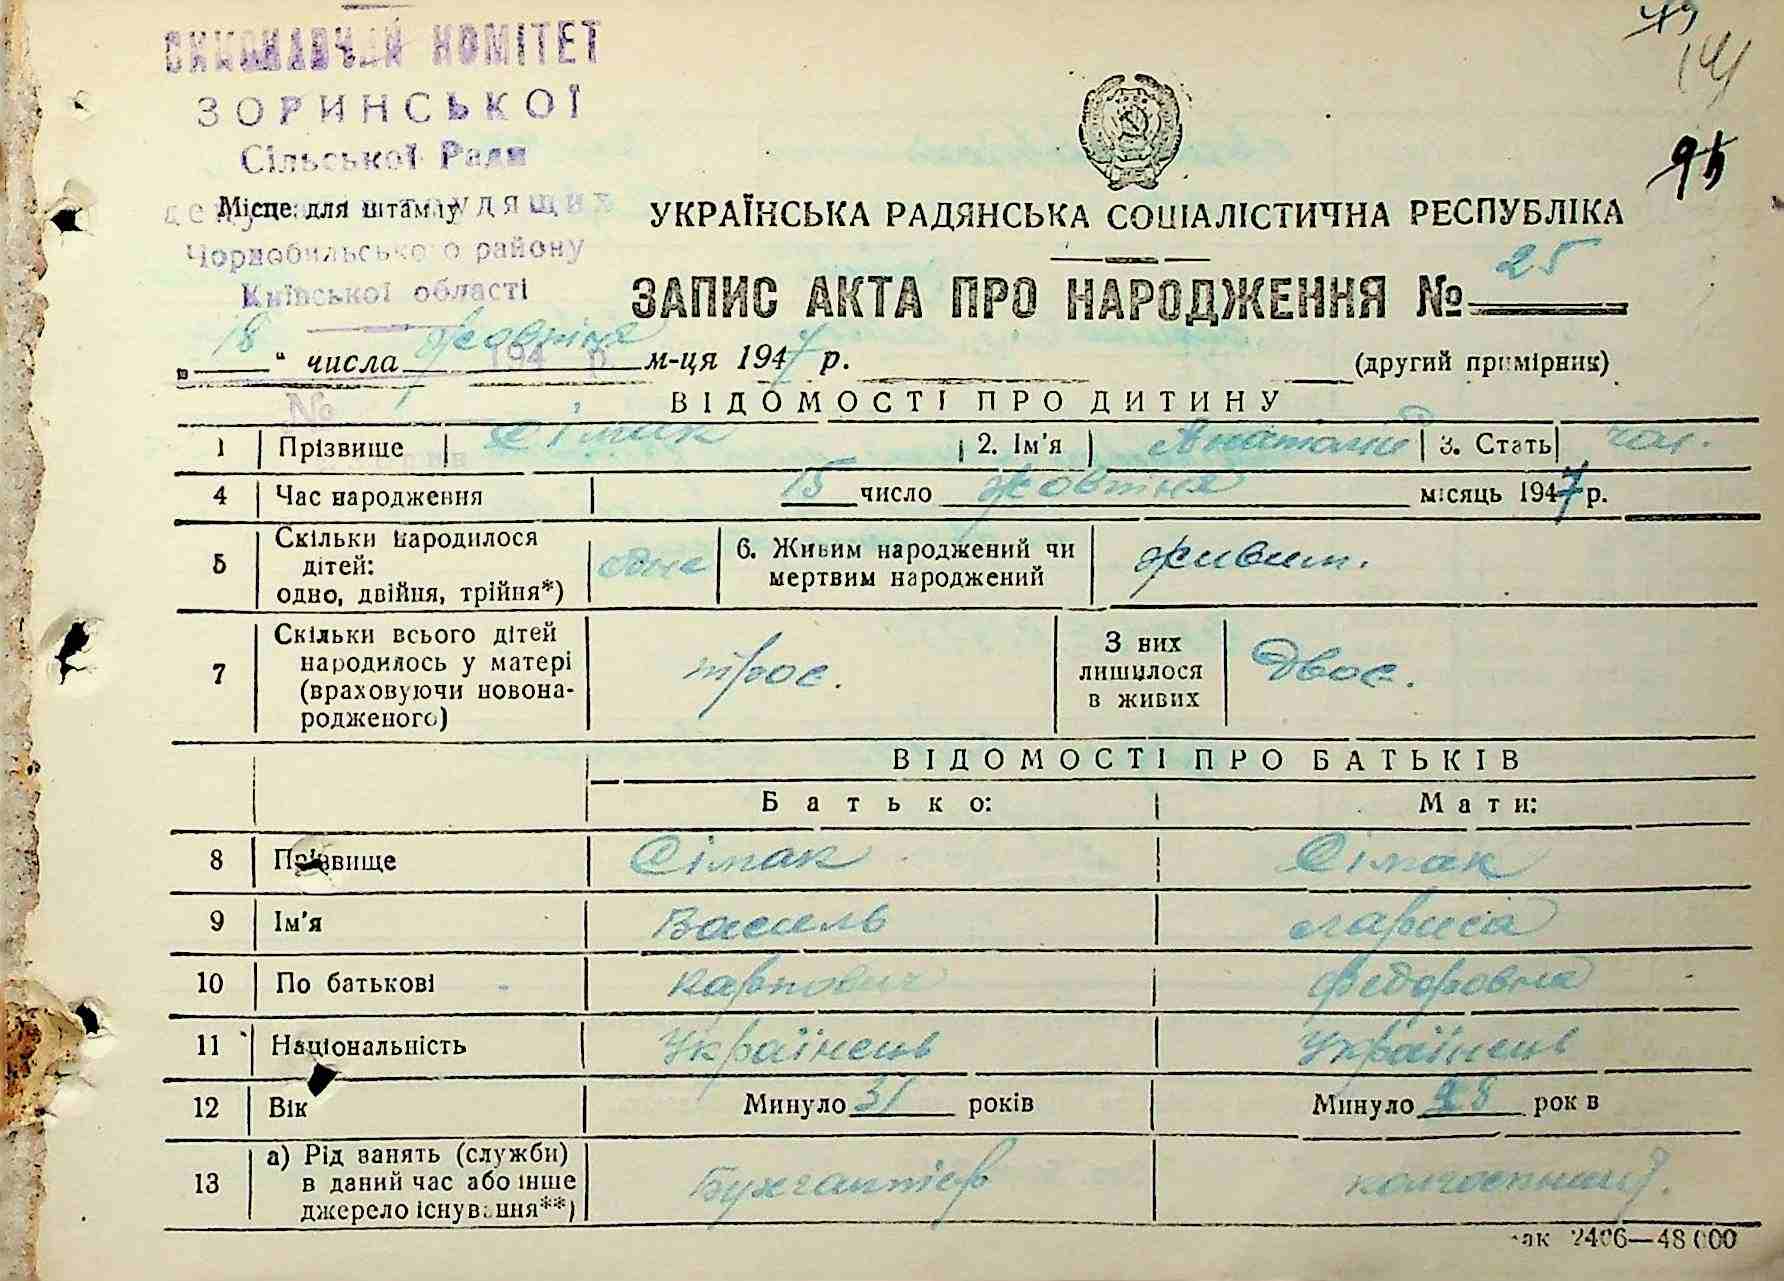 ВИКОНАВЧИЙ КОМІТЕТ
ЗОРИНСЬКОЇ
Сільської Ради
трудящих
Місце для штампу
Чорнобильського району
Київської області
194 р.
№
95
УКРАЇНСЬКА РАДЯНСЬКА СОЦІАЛІСТИЧНА РЕСПУБЛІКА
ЗАПИС АКТА ПРО НАРОДЖЕННЯ № 25
„18“ числа жовтня м-ця 1947 р. (другий примірник)
ВІДОМОСТІ ПРО ДИТИНУ
1 Прізвище Сімак 2. Ім'я Анатолій 3. Стать чол.
4 Час народження 15 число жовтня місяць 1947 р.
5 Скільки народилося дітей: одно, двійня, трійня*) одне 6. Живим народжений чи мертвим народжений живим.
7 Скільки всього дітей народилось у матері (враховуючи новонародженого) троє. З них лишилося в живих двоє.
ВІДОМОСТІ ПРО БАТЬКІВ
Батько: Мати:
8 Прізвище Сімак Сімак
9 Ім'я Василь Лариса
10 По батькові Карпович Федоровна
11 Національність Українець Українець
12 Вік Минуло 31 років Минуло 28 рок в
13 а) Рід занять (служби) в даний час або інше джерело існування**) Бухгалтер колгоспниц.
2406—48 000